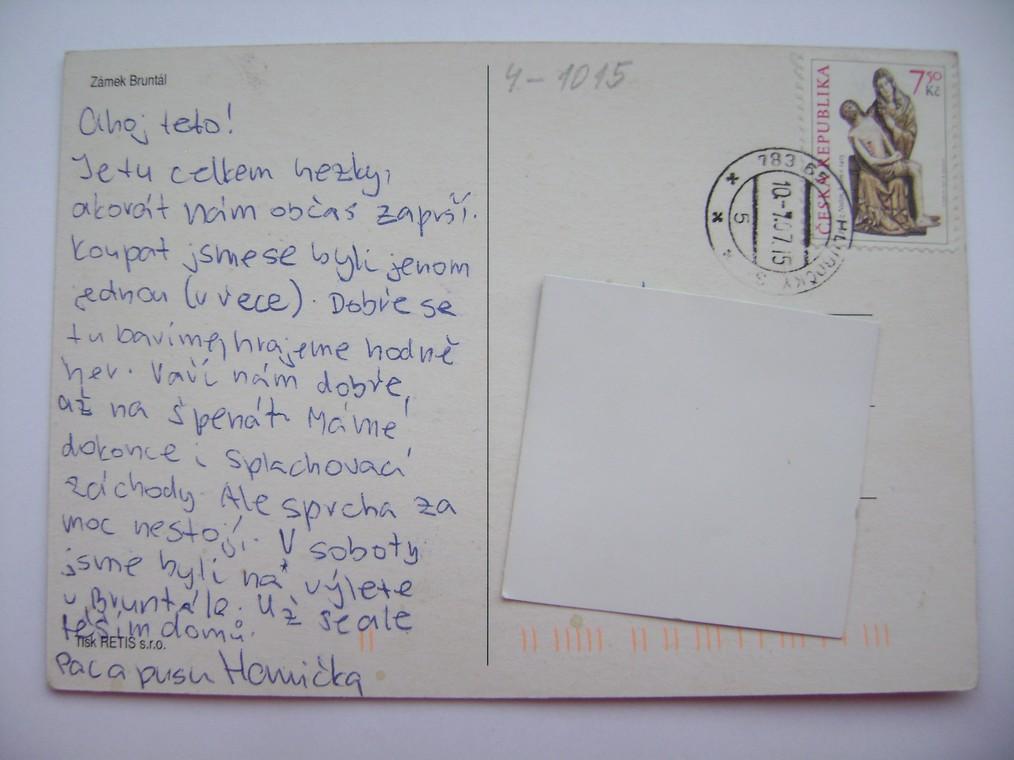 Zámek Bruntál
Ahoj teto!
Je tu celkem hezky,
akorát nám občas zaprší.
Koupat jsme se byli jenom
jednou (v řece). Dobře se
tu bavíme, hrajeme hodně
her. Vaří nám dobře,
až na špenát. Máme
dokonce i splachovací
záchody. Ale sprcha za
moc nestojí. V soboty
jsme byli na výlete
v Bruntále. Už se ale
těším domů.
Tisk RETIS s.r.o.
Pac a pusu Hanička
4-1015
ČESKÁ REPUBLIKA
7 50
Kč
783 6
10.-7.07.15
HLUBOČKY 3
5